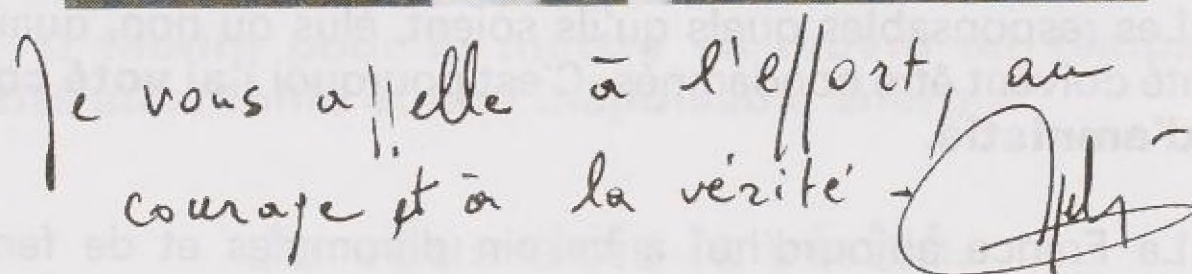 Je vous appelle à l'effort, au
courage et à la vérité -